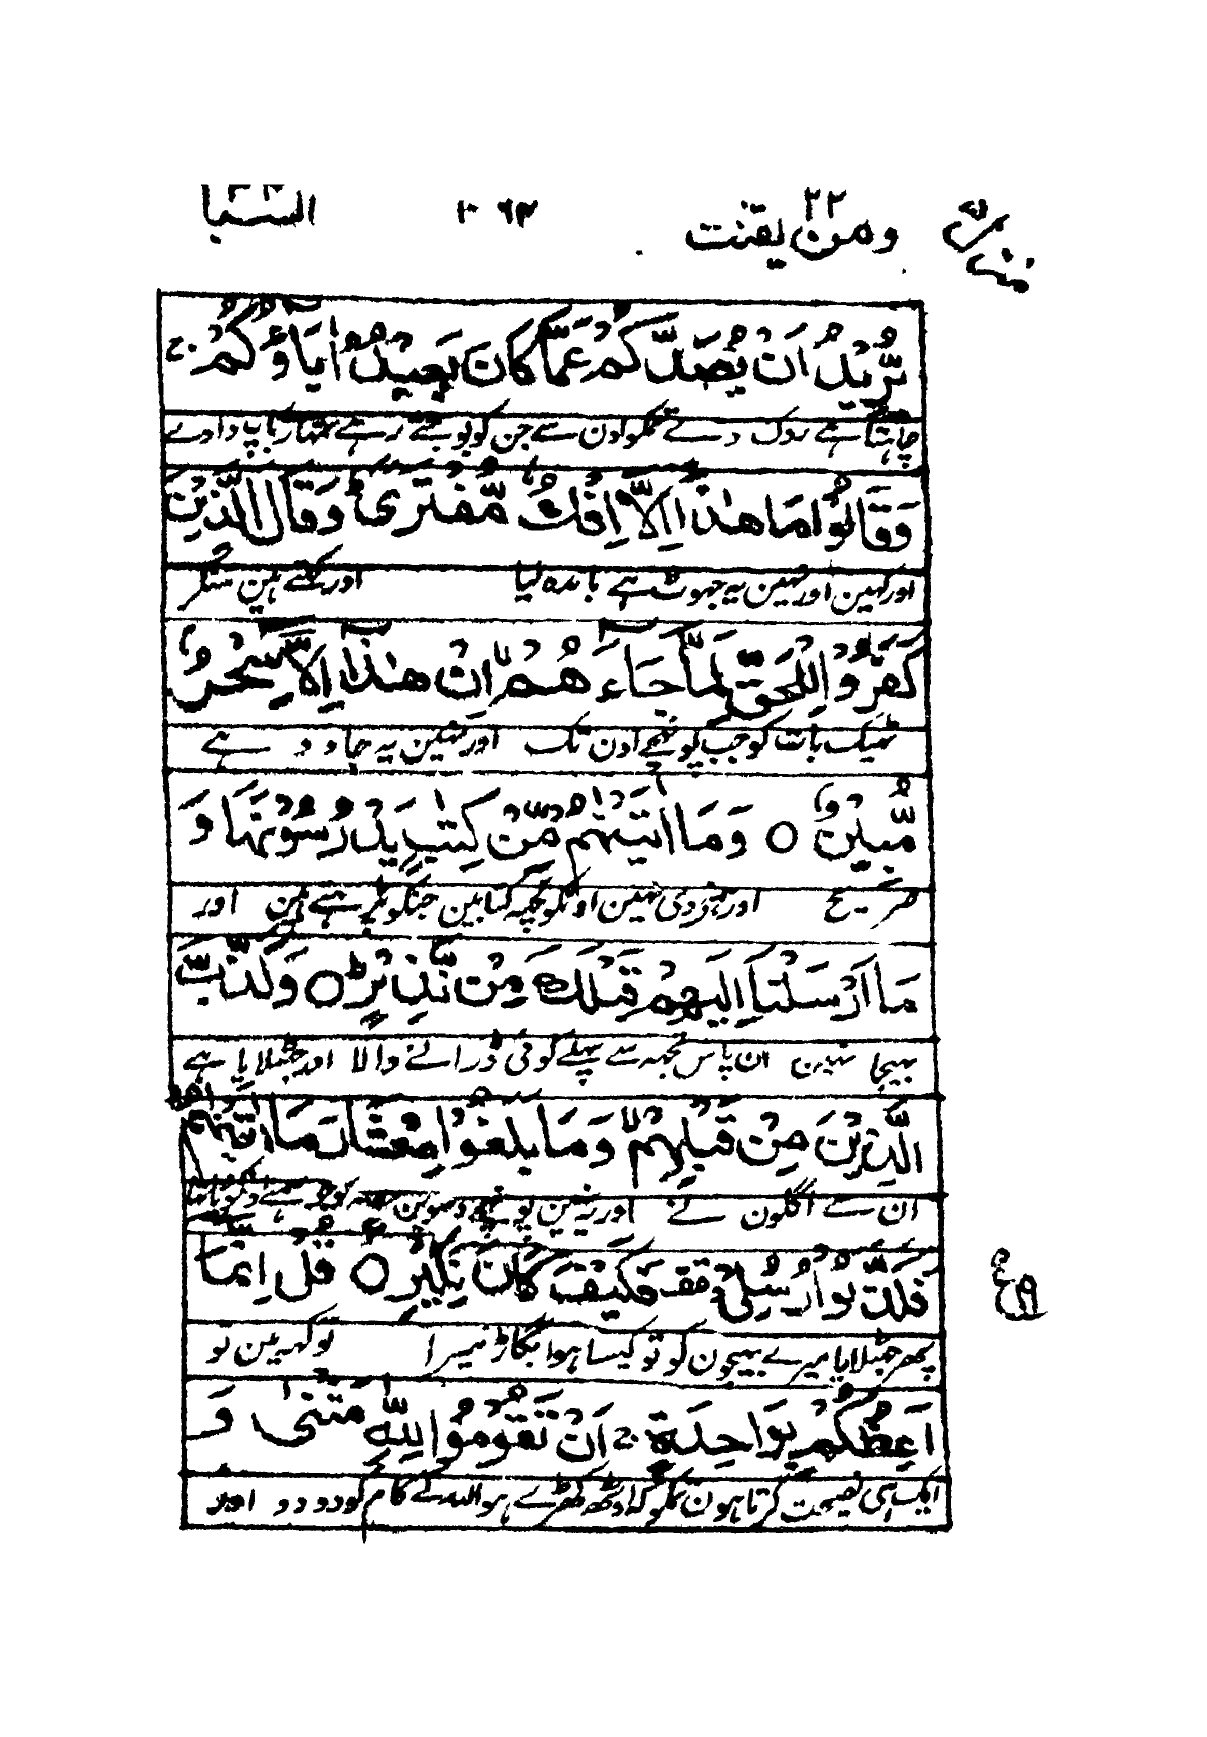 منزل ومن یقنت ۲۲ ۱۰۶۳ السبا
یُّرِیْدُ اَنْ یَّصُدَّكُمْ عَمَّا كَانَ یَعْبُدُ اٰبَآؤُكُمْ ۚ
چاہتا ہے روک دے تمکو اون سے جن کو پوجتے رہے تمہارے باپ دادے
وَقَالُوْا مَا هٰذَاۤ اِلَّاۤ اِفْكٌ مُّفْتَرًىؕ وَقَالَ الَّذِیْنَ
اور کہین اور نہین یہ جہوٹ ہے باندہ لیا اور کہتے ہین منکر
كَفَرُوْا لِلْحَقِّ لَمَّا جَآءَهُمْ ۙ اِنْ هٰذَاۤ اِلَّا سِحْرٌ
ٹھیک بات کو جب پہنچے اون تک اور نہین یہ جادو ہے
مُّبِیْنٌ ۝ وَمَاۤ اٰتَیْنٰهُمْ مِّنْ كُتُبٍ یَّدْرُسُوْنَهَا وَ
صریح اور ہمنے دی نہین اونکو کچہ کتابین جنکو پڑہتے ہین اور
مَاۤ اَرْسَلْنَاۤ اِلَیْهِمْ قَبْلَكَ مِنْ نَّذِیْرٍؕ ۝ وَكَذَّبَ
بہیجا نہین ان پاس تجہہ سے پہلے کوئی ڈرانے والا اور جہٹلایا ہے
الَّذِیْنَ مِنْ قَبْلِهِمْ ۙ وَمَا بَلَغُوْا مِعْشَارَ مَاۤ اٰتَیْنٰهُمْ
ان سے اگلون نے اور یہ نہین پہنچے دسوین حصہ کو جو ہمنے اونکو دیا تہا
فَكَذَّبُوْا رُسُلِیْ ۫ قف فَكَیْفَ كَانَ نَكِیْرِ ۝ قُلْ اِنَّمَاۤ
پھر جہٹلایا میرے بہیجون کو تو کیسا ہوا بگاڑ میرا تو کہہ مین تو
اَعِظُكُمْ بِوَاحِدَةٍ ۚ اَنْ تَقُوْمُوْا لِلّٰهِ مَثْنٰى وَ
ایک ہی نصیحت کرتا ہون تمکو کہ اوٹھ کھڑے ہو اللہ کے کام کو دو دو اور